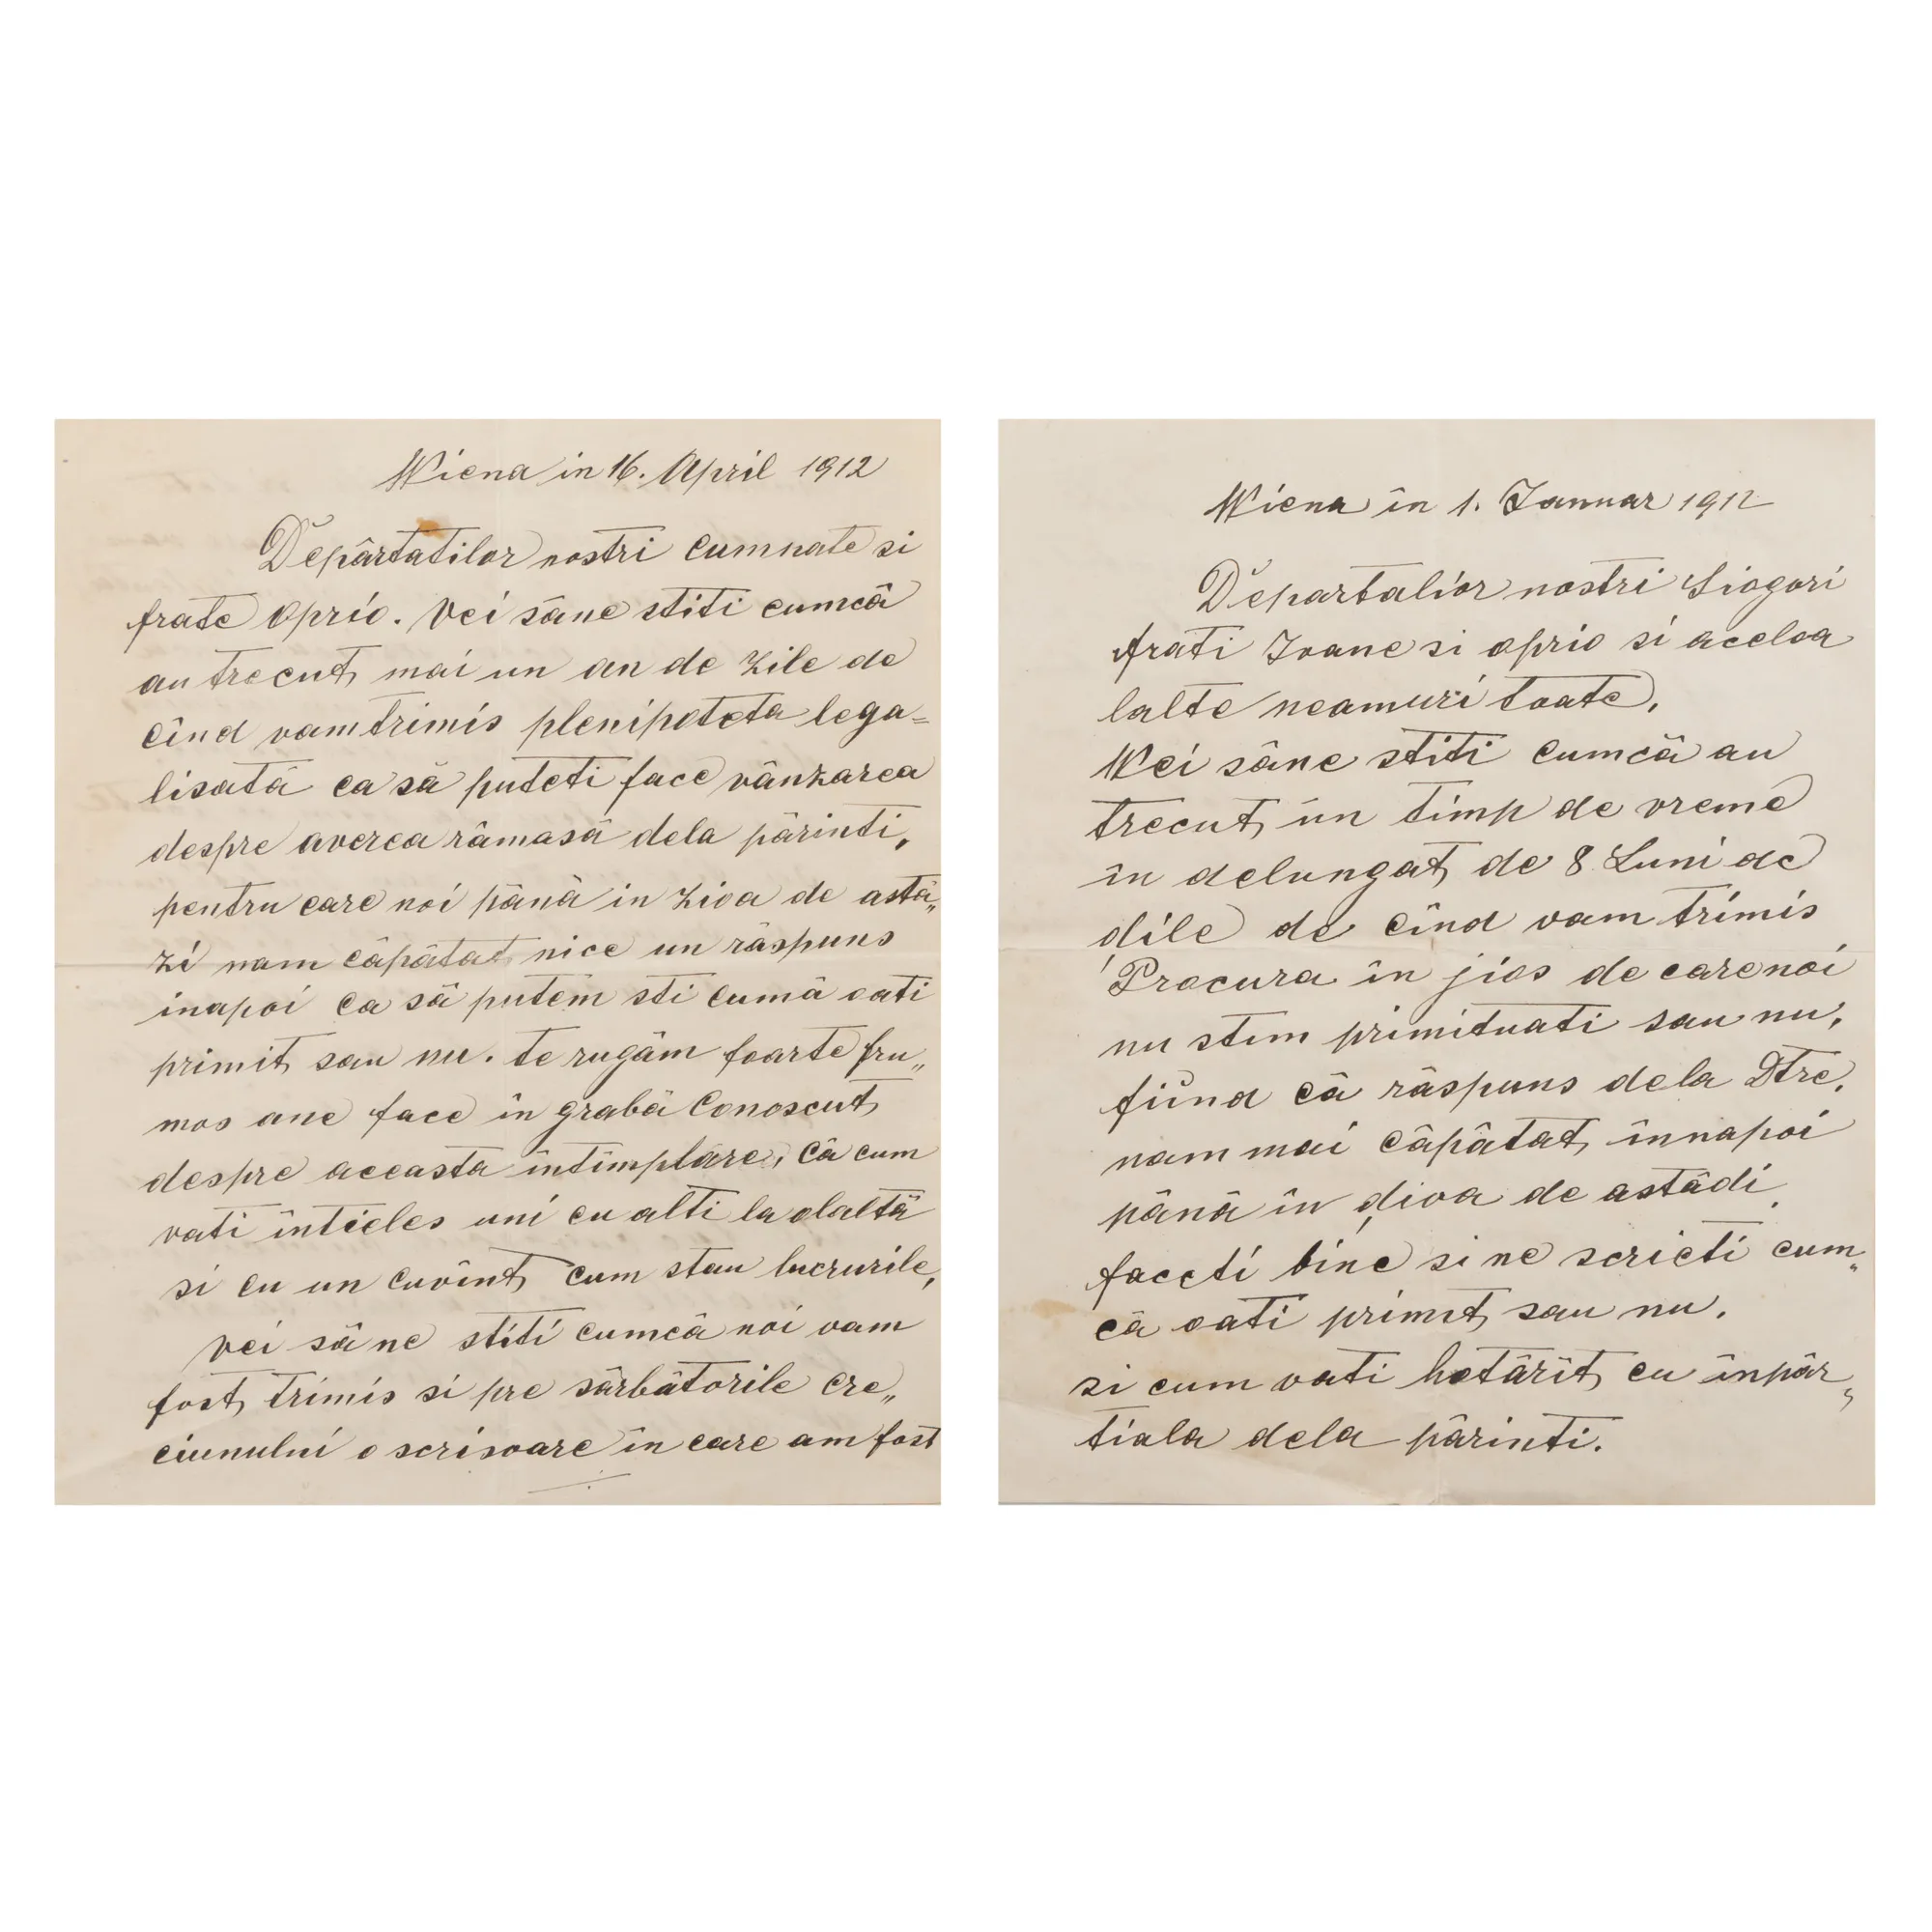 Wiena in 16. April 1912
Depârtatilor nostri cumnate si
frate oprio. Vei sâne stiti cumcâ
au trecut mai un an de zile de
cînd vam trimis plenipoteta lega=
lisatâ ca sâ puteti face vânzarea
despre averea râmasâ dela pârinti,
pentru care noi pânâ in zioa de astâ„
zi nam câpâtat nice un râspuns
inapoi ca sâ putem sti cumâ oati
primit sau nu. te rugâm foarte fru„
mos ane face în grabâ Conoscut
despre aceasta intimplare, câ cum
vati întieles uni cu alti la olaltâ
si cu un cuvînt cum stau lucrurile,
vei sâ ne stiti cumcâ noi vam
fost trimis si pre sârbâtorile cre„
ciunului o scrisoare în care am fost
Wiena în 1. Januar 1912
Departalior nostri Siogori
frati Ioane si oprio si aceloa
lalte neamuri toate,
Wei sâne stiti cumcâ au
trecut un timp de vreme
în delungat de 8 Luni de
dile de cînd vam trimis
Procura în jios de care noi
nu stim primituati sau nu,
fiind câ râspuns dela Dtre,
nam mai câpâtat înnapoi
pânâ în dioa de astâdi,
faceti bine si ne scrieti cum„
câ oati primit sau nu,
si cum vati hotârît cu înpâr„
tiala dela pârinti.